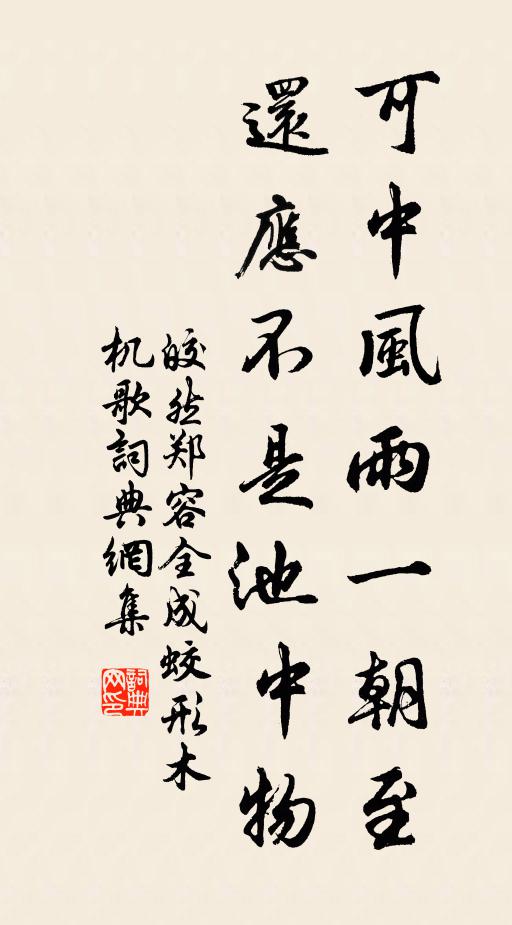 可中風雨一朝至
還應不是池中物
皎然郑容全成蛟形木
机歌詞典網集
詞典
网印